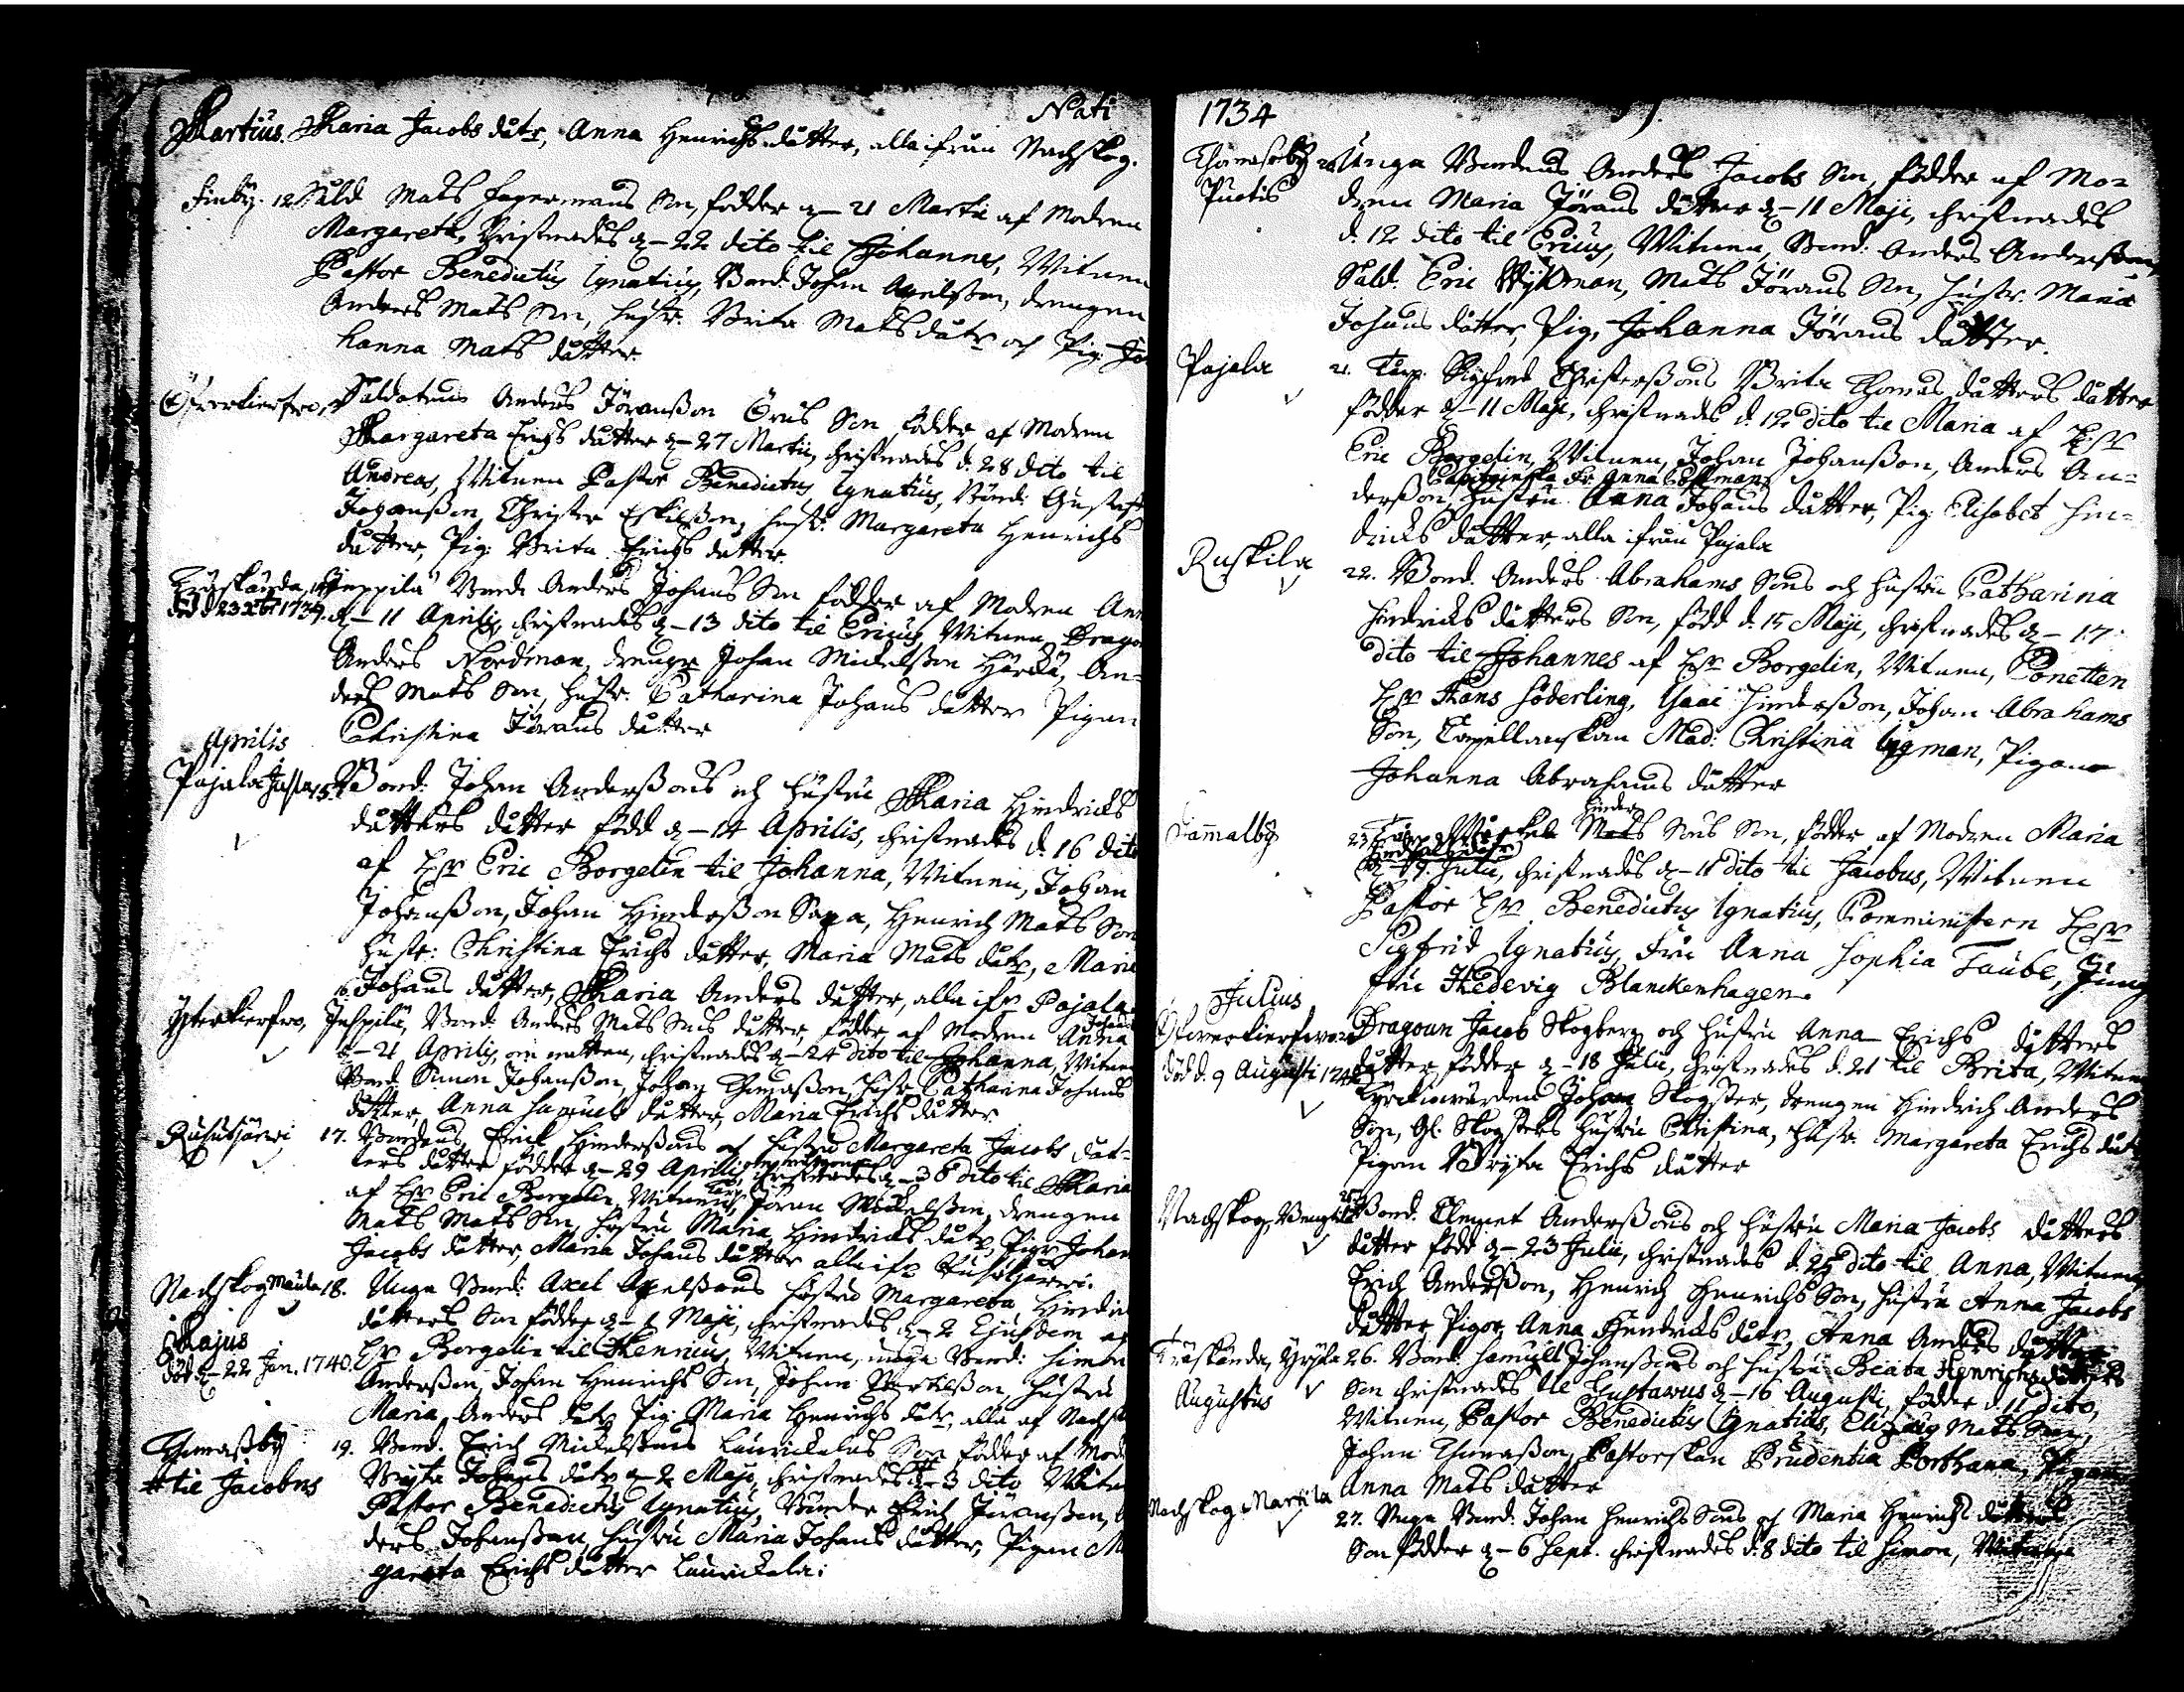 Nati
Martius. Maria Jacobs dåtr, Anna Henrichs dåtter, alla ifrån Nachskog.
Finby. 12. Sald Mats Fagermans Son, födder d. 21 Martii af Modren
Margareta, Christnades d. 22 dito til Johannes, Witnen
Pastor Benedictus Ignatius, Bond. Johan Axelsson, drengen
Anders Mats Son, Hustr. Brita Mats dåtr och Pig. Jo
hanna Mats dåtter
Öfverkierfwo, Soldatens Anders Jöransson Örns Son födder af Modren
Margareta Erichs dåtter d. 27 Martii, christnades d. 28 dito til
Andreas, Witnen Pastor Benedictus Ignatius, Bond: Gustaf
Johansson, Christer Eskilsson, Hust: Margareta Henrichs
dåtter, Pig: Brita Erichs dåtter
Träskända, Jeppilä Bonde Anders Johans Son födder af Modren An
död d 23 xbr 1734. d. 11 Aprilis, christnades d. 13 dito til Ericus, Witnen, Drago
Anders Nordman, drengr Johan Mickelsson Härkä, An-
ders Mats Son, Hustr. Catharina Johans dåtter Pigan
Christina Jörans dåtter
Aprilis
Pajala Jusla 15. Bond: Johan Anderssons och Hustru Maria Hindrichs
dåtters dåtter född d. 14 Aprilis, christnades d. 16 dito
af Hr Eric Borgelin til Johanna, Witnen, Johan
Johansson, Johan Hindersson Sapa, Henrich Mats Son
Hustr: Christina Erichs dåtter, Maria Mats dåtr, Maria
Johans dåtter, Maria Anders dåtter, alla ifr Pajala
Ytterkierfwo, Juspilä, Bond: Anders Mats Sons dåtter, födder af Modren Anna Johans
d. 21 Aprilis, om natten, christnades d. 24 dito til Johanna, Witnen
Bond Simon Johansson, Johan Thomasson, Hustr Catharina Johans
dåtter, Anna Samuels dåtter, Maria Erichs dåtter
Ruhutjärwi 17. Bondens, Erich Hinderssons och Hustru Margareta Jacobs dåt-
ters dåtter födder d. 29 Aprilis, christnades d. 30 dito til Maria
af Hr Eric Borgelin, Witnen, Torp. Jöran Mickelsson, drengen
Mats Mats Son, Hustru Maria, Hindrichs dåtr, Pigr Johan
Jacobs dåtter, Maria Johans dåtter alla ifr Ruhutjärwi.
Nachskog Maula 18. Unga Bond: Axel Axelssons Hustru Margareta Hindri
Majus dåtters Son födder d. 1 Maji, christnades d. 2 Ejusdem af
död d. 22 Jan. 1740. Hr Borgelin til Henricus, Witnen, unga Bond: Simon
Andersson, Johan Henrichs Son, Johan Bertilsson, Hustru
Maria Anders dåtr Pig: Maria Henrichs dåtr, alla af Nachsk
Thomassby 19. Bond. Erich Mickelssons Laurickalas Son födder af Mod
# til Jacobus Bryta Johans dåtr d. 2 Maji, christnades # d. 3 dito Witn
Pastor Benedictus Ignatius, Bonde Erich Jöransson,
ders Johansson Hustru Maria Johans dåtter, Pigan M
gareta Erichs dåtter Laurickala.
1734
Thomasby 20. Unga Bondens Anders Jacobs Son, födder af Mo-
Puotis dren Maria Jörans dåtter d. 11 Maji, christnades
d. 12 dito til Ericus, Witnen, Bond: Anders Andersson,
Sald. Eric Wykman, Mats Jörans Son, Hustr. Maria
Johans dåtter, Pig. Johanna Jörans dåtter.
Pajala 21. Torp. Sigfred Christerssons Brita Thomas dåtters dåtter
födder d. 11 Maji, christnades d. 12 dito til Maria af Hr
Eric Borgelin, Witnen, Johan Johansson, Anders An-
dersson, Hustru Anna Johans dåtter, Pig. Elisabet Hin-
dricks dåtter, alla ifrån Pajala
Ruskila 22. Bond. Anders Abrahams Sons och Hustru Catharina
Hindricks dåtters Son, född d. 15 Maji, christnades d. 17
dito til Johannes af Hr Borgelin, Witnen, Cornetten
Hr Hans Söderling, Isaac Hindersson, Johan Abrahams
Son, Capellanskan Mad: Christina Ugman, Pigan
Johanna Abrahams dåtter
Sammalby 23. Torp. Michel Hinders Sons Son, födder af Modren Maria
d. 9. Julii, christnades d. 11 dito til Jacobus, Witnen
Pastor Hr Benedictus Ignatius, Comministern Hr
Sigfrid Ignatius, Fru Anna Sophia Taube, Jung
fru Hedevig Blanckenhagen.
Julius
Öfwerkierfwo Dragoun Jacob Skogberg och Hustru Anna Erichs dåtters
död d. 9 Augusti dåtter, födder d. 18 Julii, christnades d. 21 til Brita, Witnen
Kyrckiowärden Johan Skogster, drengen Hindrich Anders
Son, Gl. Skogsters Hustru Christina, Hustr Margareta Erichs dåt
Pigan Bryta Erichs dåtter
Nachskog, Bengtila Bond. Clemet Anderssons och Hustru Maria Jacobs dåtters
dåtter född d. 23 Julii, christnades d. 25 dito til Anna, Witnen,
Erich Andersson, Henrich Henrichs Son, Hustru Anna Jacobs
dåtter Pigor, Anna Hendrichs dåtr, Anna Anders dåtter
Träskända, Yryla 26. Bond. Samuel Johanssons och Hustru Beata Henrichs dåtters
Augustus Son christnades til Gustavus d. 16 Augusti, födder d. 11 dito,
Witnen, Pastor Benedictus Ignatius, Mats Son,
Johan Thomasson, Pastorskan Prudentia Porthana, Pigan
Anna Mats dåtter
Nachskog Martila 27. Unga Bond. Johan Henrichs Sons och Maria Henrichs dåtters
Son födder d. 6 Sept. christnades d. 8 dito til Simon, Witnen